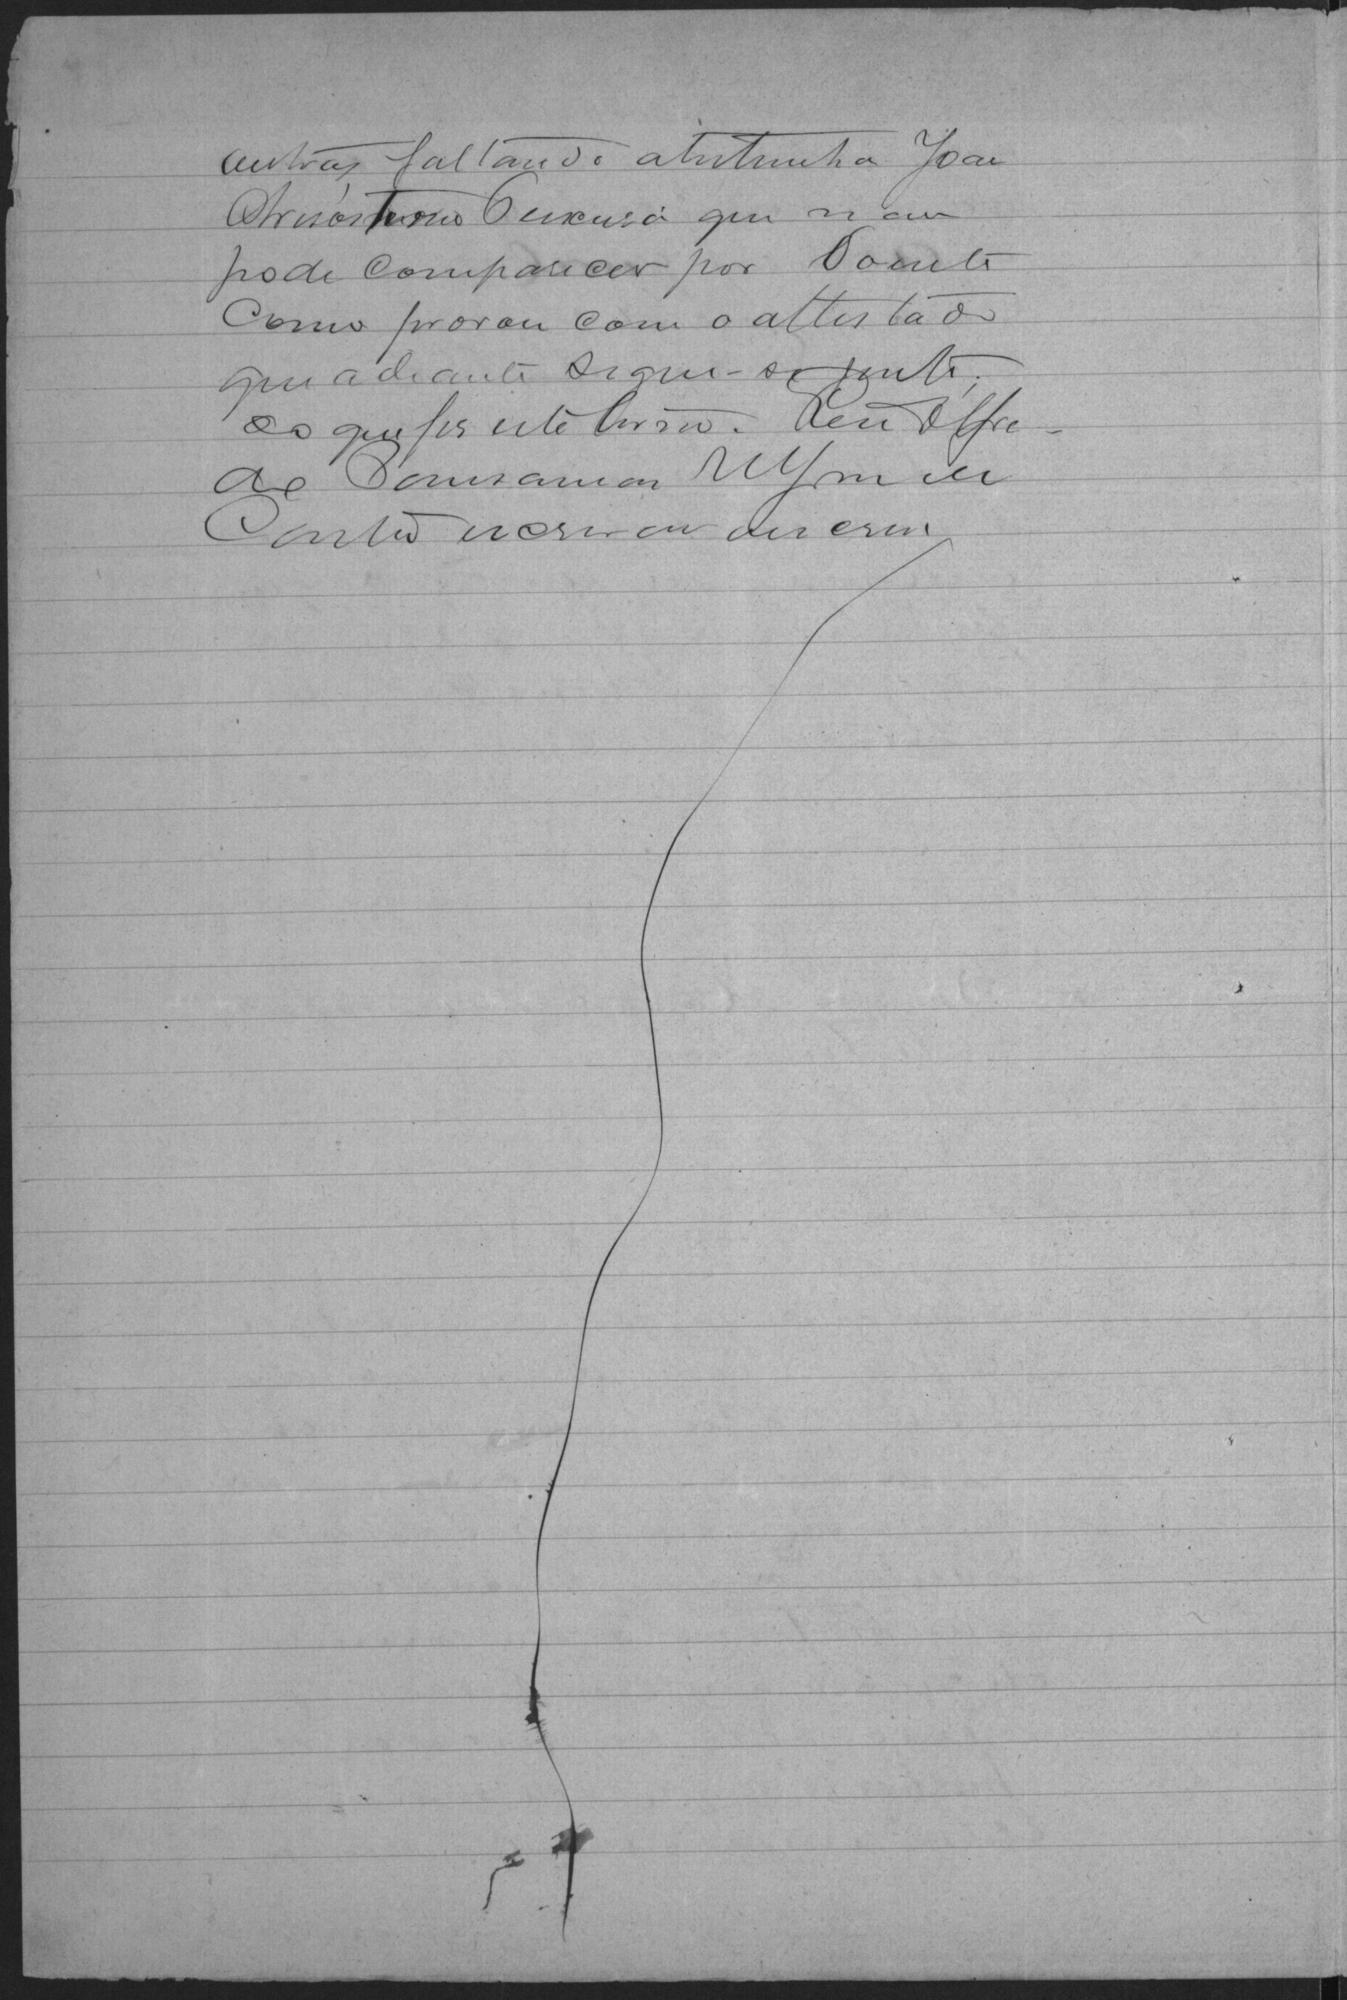 outras faltando atestemunha Joau
Chrisostomo que nau
pode comparecer por Doente
Como provou com o attestado
que adeante segue-se junto,
do que fis este termo. Eeu
de
Castro escrivau oescrevi